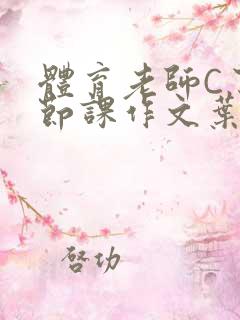 體育老師C
節課作文葉
啓功